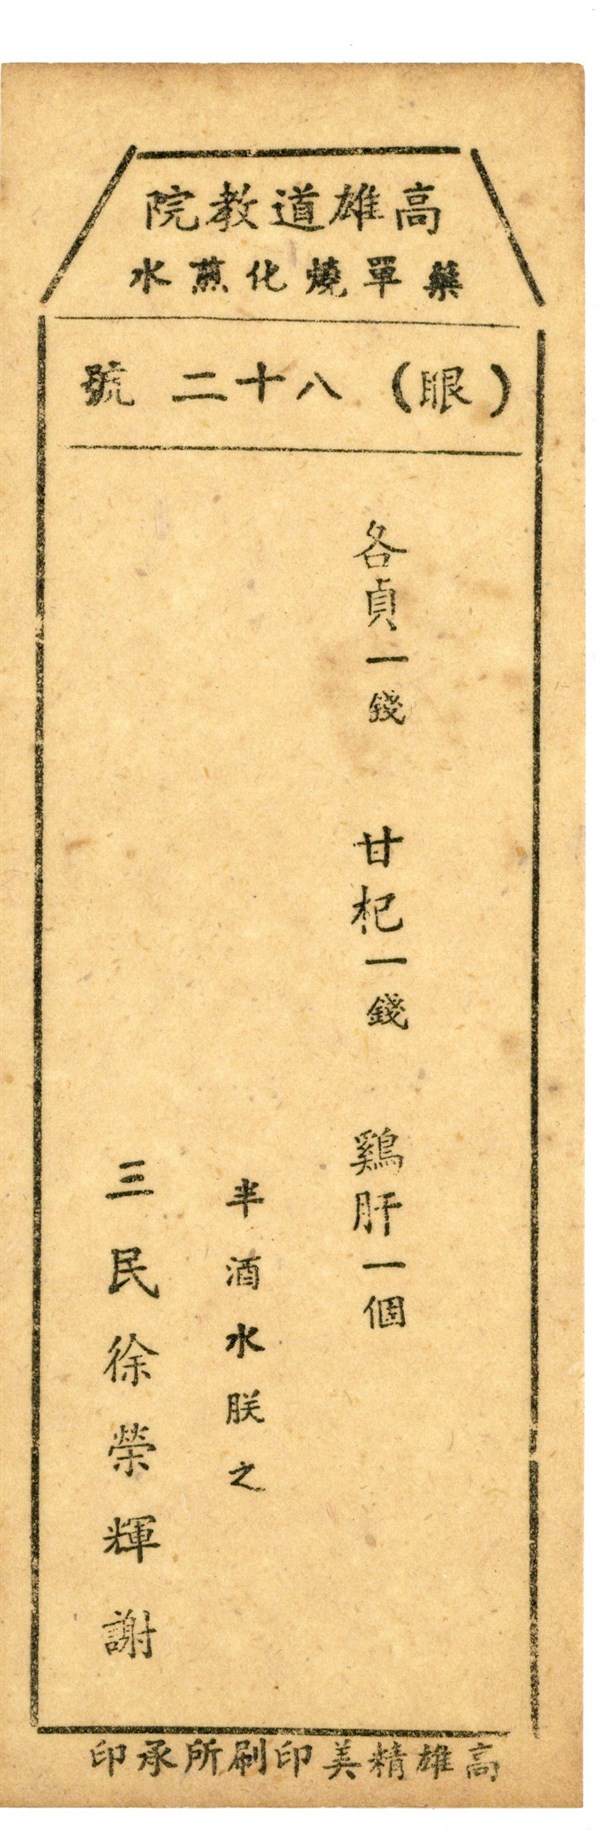 高雄道教院
藥單燒化蒸水
（眼）八十二號
各貞一錢　甘杞一錢　鷄肝一個
半酒水朕之
三民徐榮輝謝
高雄精美印刷所承印